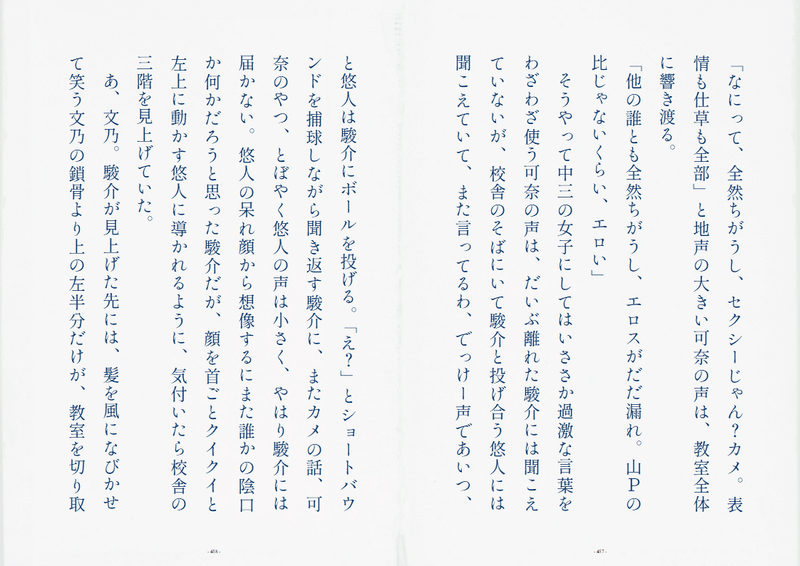 「なにって、全然ちがうし、セクシーじゃん？カメ。表
情も仕草も全部」と地声の大きい可奈の声は、教室全体
に響き渡る。
「他の誰とも全然ちがうし、エロスがだだ漏れ。山Ｐの
比じゃないくらい、エロい」
　そうやって中三の女子にしてはいささか過激な言葉を
わざわざ使う可奈の声は、だいぶ離れた駿介には聞こえ
ていないが、校舎のそばにいて駿介と投げ合う悠人には
聞こえていて、また言ってるわ、でっけー声であいつ、
- 417 -
と悠人は駿介にボールを投げる。「え？」とショートバウ
ンドを捕球しながら聞き返す駿介に、またカメの話、可
奈のやつ、とぼやく悠人の声は小さく、やはり駿介には
届かない。悠人の呆れ顔から想像するにまた誰かの陰口
か何かだろうと思った駿介だが、顔を首ごとクイクイと
左上に動かす悠人に導かれるように、気付いたら校舎の
三階を見上げていた。
　あ、文乃。駿介が見上げた先には、髪を風になびかせ
て笑う文乃の鎖骨より上の左半分だけが、教室を切り取